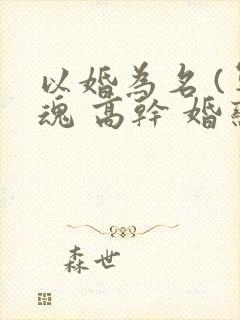 以婚為名(
魂 高幹 婚
森世